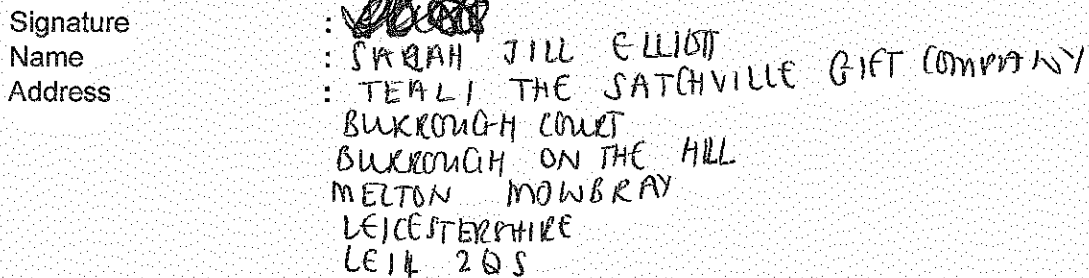 Signature :
Name : SARAH JILL ELLIOTT
Address : TEAL / THE SATCHVILLE GIFT COMPANY
BURROUGH COURT
BURROUGH ON THE HILL
MELTON MOWBRAY
LEICESTERSHIRE
LE14 2QS